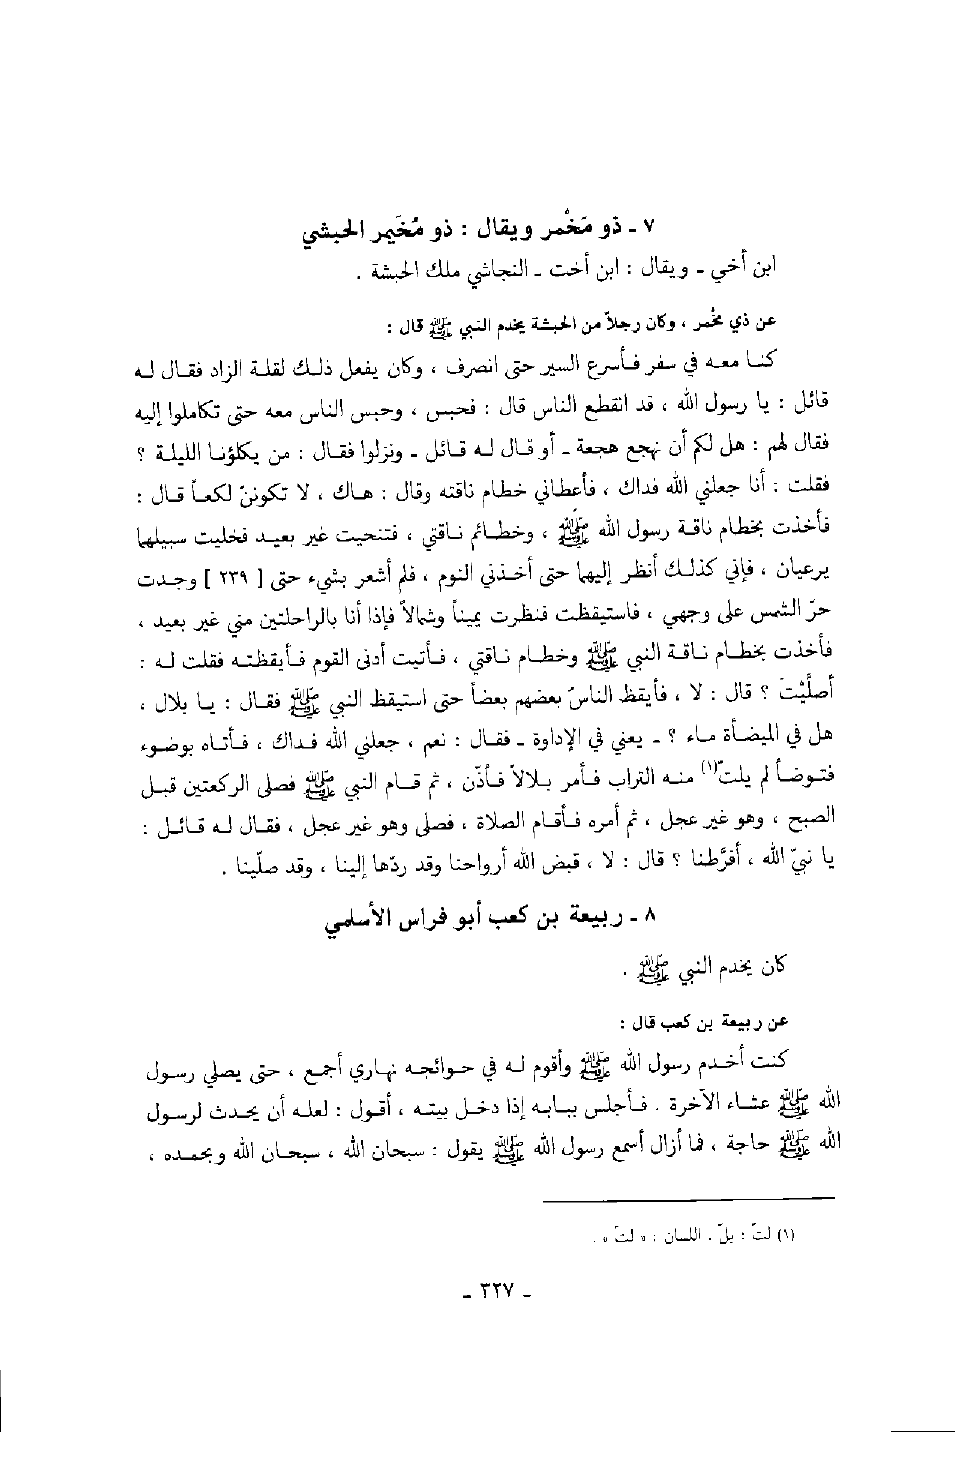 ٧ ـ ذو مَخْمر ويقال : ذو مُخَيمر الحبشي
ابن أخي ـ ويقال : ابن أخت ـ النجاشي ملك الحبشة .
عن ذي مخْمر ، وكان رجلاً من الحبشة يخدم النبي ﷺ قال :
كنا معه في سفر فأسرع السير حتى انصرف ، وكان يفعل ذلك لقلة الزاد فقال له
قائل : يا رسول الله ، قد انقطع الناس قال : فحبس ، وحبس الناس معه حتى تكاملوا إليه
فقال لهم : هل لكم أن نهجع هجعة ـ أو قال له قائل ـ ونزلوا فقال : من يكلؤنا الليلة ؟
فقلت : أنا جعلني الله فداك ، فأعطاني خطام ناقته وقال : هاك ، لا تكوننّ لكعاً قال :
فأخذت بخطام ناقة رسول الله ﷺ ، وخطائم ناقتي ، فتنحيت غير بعيد فخليت سبيلهما
يرعيان ، فإني كذلك أنظر إليهما حتى أخذني النوم ، فلم أشعر بشيء حتى [ ٢٣٩ ] وجدت
حرّ الشمس على وجهي ، فاستيقظت فنظرت يميناً وشمالاً فإذا أنا بالراحلتين مني غير بعيد ،
فأخذت بخطام ناقة النبي ﷺ وخطام ناقتي ، فأتيت أدنى القوم فأيقظته فقلت له :
أصلَّيْتَ ؟ قال : لا ، فأيقظ الناسُ بعضهم بعضاً حتى استيقظ النبي ﷺ فقال : يا بلال ،
هل في الميضأة ماء ؟ ـ يعني في الإداوة ـ فقال : نعم ، جعلني الله فداك ، فأتاه بوضوء
فتوضأ لم يلتّ(١) منه التراب فأمر بلالاً فأذّن ، ثم قام النبي ﷺ فصلى الركعتين قبل
الصبح ، وهو غير عجل ، ثم أمره فأقام الصلاة ، فصلى وهو غير عجل ، فقال له قائل :
يا نبيّ الله ، أفرَّطنا ؟ قال : لا ، قبض الله أرواحنا وقد ردّها إلينا ، وقد صلّينا .
٨ ـ ربيعة بن كعب أبو فراس الأسلمي
كان يخدم النبي ﷺ .
عن ربيعة بن كعب قال :
كنت أخدم رسول الله ﷺ وأقوم له في حوائجه نهاري أجمع ، حتى يصلي رسول
الله ﷺ عشاء الآخرة . فأجلس ببابه إذا دخل بيته ، أقول : لعله أن يحدث لرسول
الله ﷺ حاجة ، فما أزال أسمع رسول الله ﷺ يقول : سبحان الله ، سبحان الله وبحمده ،
(١) لتّ : بلّ . اللسان : « لتّ » .
ـ ٣٢٧ ـ